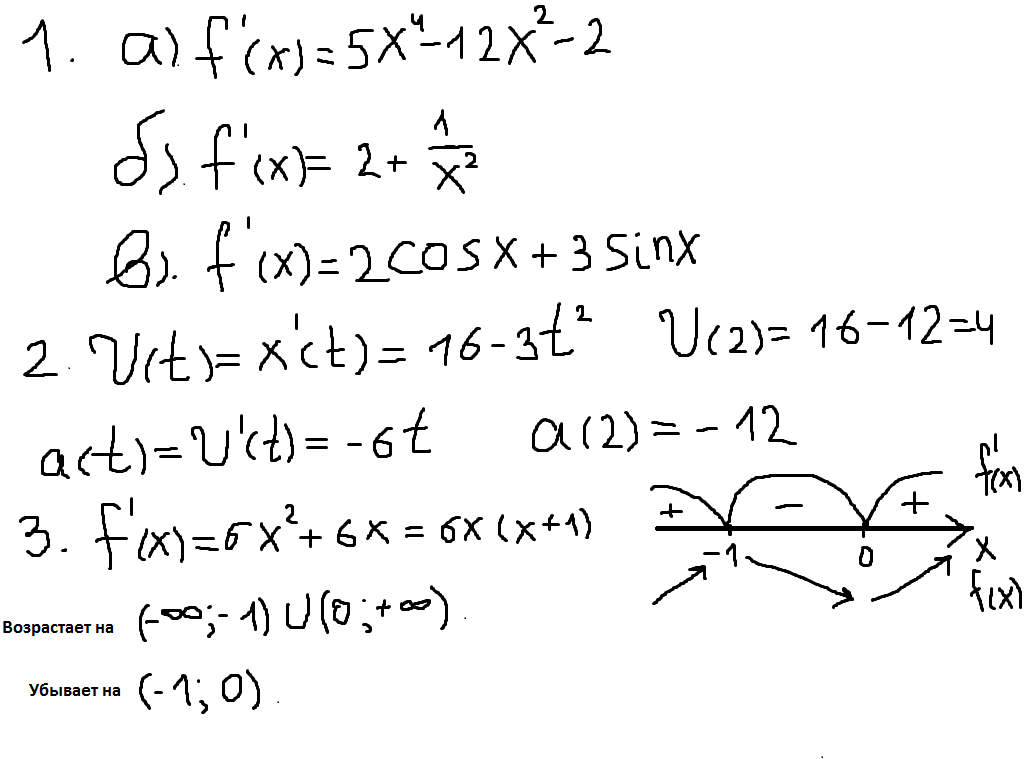 1. а). f'(x)=5x⁴-12x²-2
б). f'(x)= 2+ 1/x²
в). f'(x)=2cosx+3sinx
2. V(t)=x'(t)=16-3t² V(2)=16-12=4
a(t)=V'(t)=-6t a(2)=-12
3. f'(x)=6x²+6x=6x(x+1)
+ - + f'(x)
-1 0 x
f(x)
Возрастает на (-∞;-1)U(0;+∞).
Убывает на (-1;0).